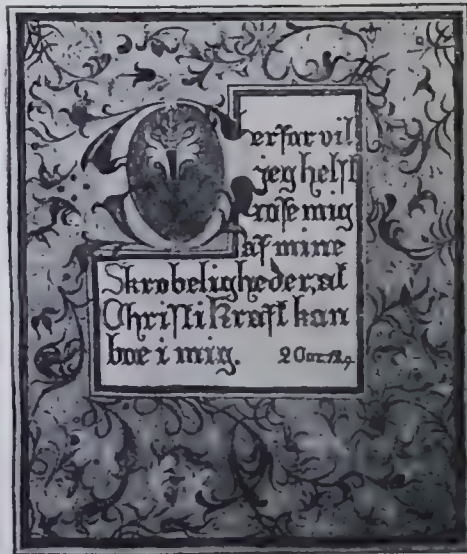 Derfor vil
jeg helst
rose mig
af mine
Skrøbeligheder, at
Christi Kraft kan
boe i mig. 2 Cor. 12, 9